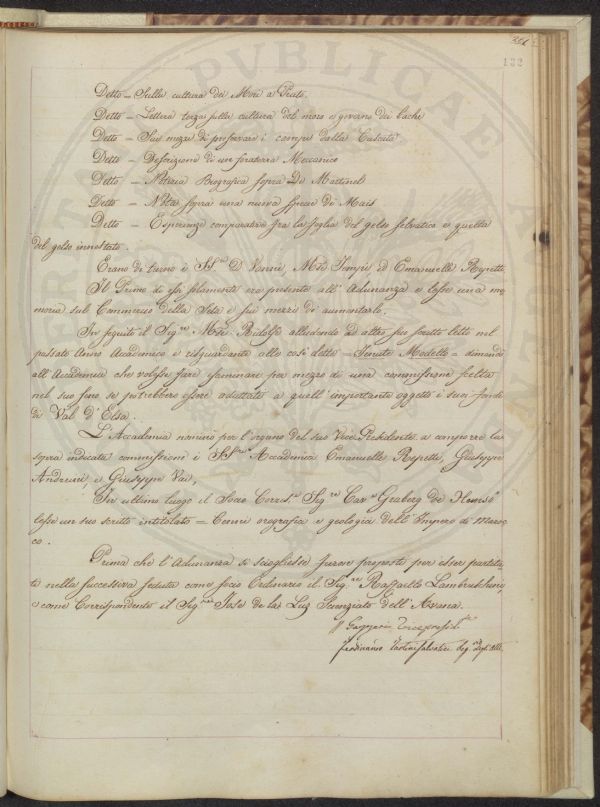 221
132
Detto - Sulla cultura dei Mori a Prato.
Detto - Lettera terza sulla cultura del moro e governo dei bachi
Detto - Sui mezzi di preservare i campi dalla Cuscuta
Detto - Descrizione di un Meccanico
Detto - Notizia Biografica sopra De Martinel
Detto - Nota sopra una nuova specie di Mais
Detto - Esperienze comparative fra la foglia del gelso selvatico e quella
del gelso innestato.
Erano di turno i SS.ri D Vanni, M.se Tempi, ed Emanuelle Repetti
Il Primo di essi solamente era presente all'Adunanza e lesse una me
moria sul Commercio della Seta e sui mezzi di aumentarlo.
In seguito il Sig.re M.se Ridolfi alludendo ad altro suo scritto letto nel
passato Anno Accademico e risguardante alle così dette = Tenute Modello = dimandò
all'Accademia che volesse fare esaminare per mezzo di una commissione scelta
nel suo seno se potrebbero essere adattati a quell'importante oggetto i suoi fondi
di Val d'Elsa.
L'Accademia nominò per l'organo del suo Vice Presidente a comporre la
sopra indicata commissione i SS.ri Accademici Emanuelle Repetti, Giuseppe
Andreini, e Giuseppe Vai,
In ultimo luogo il Socio Corris.te Sig.re Cav.e Graberg de Hemsö
lesse un suo scritto intitolato = Cenni orografia e geologia dell'Impero di Maroc
co.
Prima che l'Adunanza si sciogliesse furon proposti per esser partita
ti nella successiva seduta come socio Ordinario il Sig.re Raffaello Lambruschini,
e come Corrispondente il Sig.re José de la Luz dell'Avana.
Ferdinando Tartini Salvatici Seg.rio degli Atti
PVBLICAE